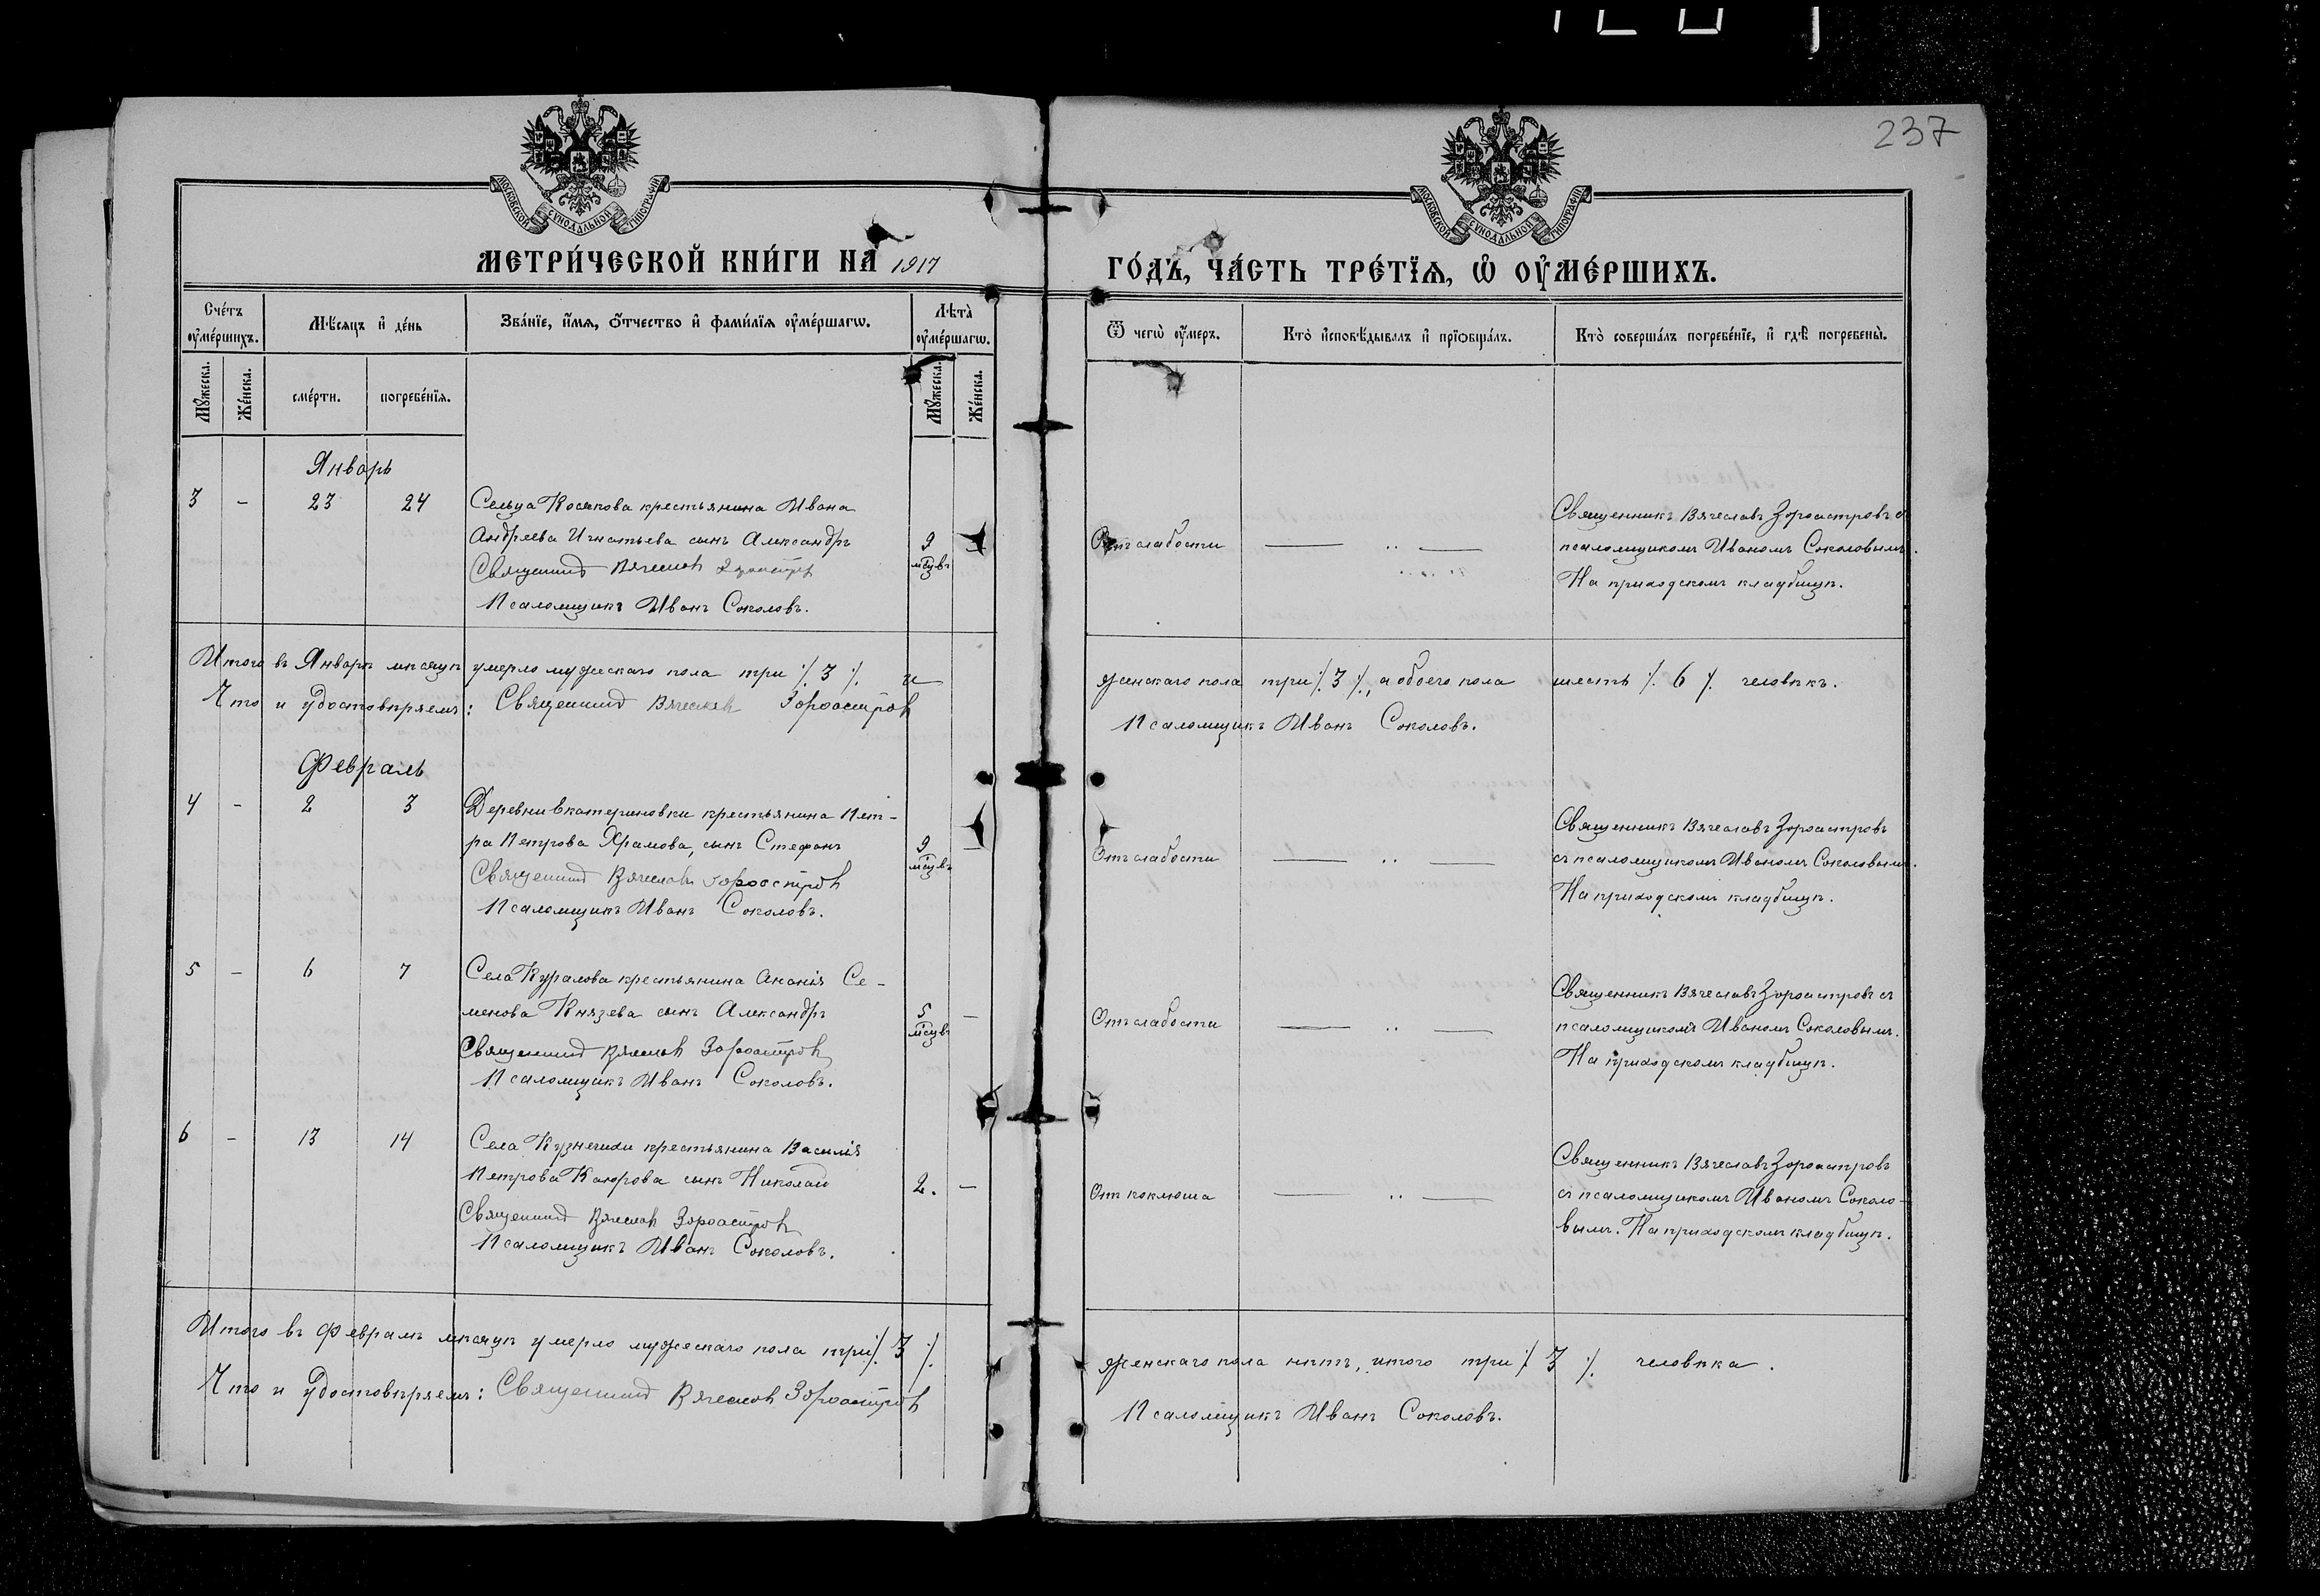 237
МОСКОВСКОЙ СѴНОДАЛЬНОЙ ТИПОГРАФІИ
МОСКОВСКОЙ СѴНОДАЛЬНОЙ ТИПОГРАФІИ
МЕТРИ́ЧЕСКОЙ КНИ́ГИ НА 1917
ГО́ДЪ, ЧА́СТЬ ТРЕ́ТЇѦ, Ѡ҆ ОУ҆МЕ́РШИХЪ.
Сче́тъ оу҆ме́ршихъ.
Мѣ́сяцъ и҆ де́нь
Зва́нїе, и҆́мѧ, ѻ҆́тчество и҆ фами́лїѧ оу҆ме́ршагѡ.
Лѣ́та оу҆ме́ршагѡ.
Ѿ чегѡ̀ оу҆́меръ.
Кто̀ и҆сповѣ́дывалъ и҆ прїѡбща́лъ.
Кто̀ соверша́лъ погребе́нїе, и҆ гдѣ̀ погребены̀.
Мꙋ́жеска.
Же́нска.
сме́рти.
погребе́нїѧ.
Мꙋ́жеска.
Же́нска.
Январь
3 - 23 24 Сельца Косякова крестьянина Ивана
Андреева Игнатьева сынъ Александръ 9 мсцвъ
Священникъ Вячеславъ Зороастровъ
Псаломщикъ Иванъ Соколовъ.
Отъ слабости
Священникъ Вячеславъ Зороастровъ съ
псаломщикомъ Иваномъ Соколовымъ.
На приходскомъ кладбищѣ.
Итого въ Январѣ мѣсяцѣ умерло мужескаго пола три ⁒ 3 ⁒ и женскаго пола три ⁒ 3 ⁒, а обоего пола шесть ⁒ 6 ⁒ человѣкъ.
Что и удостовѣряемъ: Священникъ Вячеславъ Зороастровъ
Псаломщикъ Иванъ Соколовъ.
Февраль
4 - 2 3 Деревни Екатериновки крестьянина Пет-
ра Петрова Храмова, сынъ Стефанъ 9 мсцвъ -
Священникъ Вячеславъ Зороастровъ
Псаломщикъ Иванъ Соколовъ.
Отъ слабости
Священникъ Вячеславъ Зороастровъ
съ псаломщикомъ Иваномъ Соколовымъ.
На приходскомъ кладбищѣ.
5 - 6 7 Села Куралова крестьянина Ананія Се-
менова Князева сынъ Александръ 5 мсцвъ -
Священникъ Вячеславъ Зороастровъ
Псаломщикъ Иванъ Соколовъ.
Отъ слабости
Священникъ Вячеславъ Зороастровъ съ
псаломщикомъ Иваномъ Соколовымъ.
На приходскомъ кладбищѣ.
6 - 13 14 Села Кузнечихи крестьянина Василія
Петрова Каюрова сынъ Николай 2. -
Священникъ Вячеславъ Зороастровъ
Псаломщикъ Иванъ Соколовъ.
Отъ коклюша
Священникъ Вячеславъ Зороастровъ
съ псаломщикомъ Иваномъ Соколо-
вымъ. На приходскомъ кладбищѣ.
Итого въ Февралѣ мѣсяцѣ умерло мужескаго пола три ⁒ 3 ⁒ женскаго пола нѣтъ, итого три ⁒ 3 ⁒ человѣка.
Что и удостовѣряемъ: Священникъ Вячеславъ Зороастровъ
Псаломщикъ Иванъ Соколовъ.